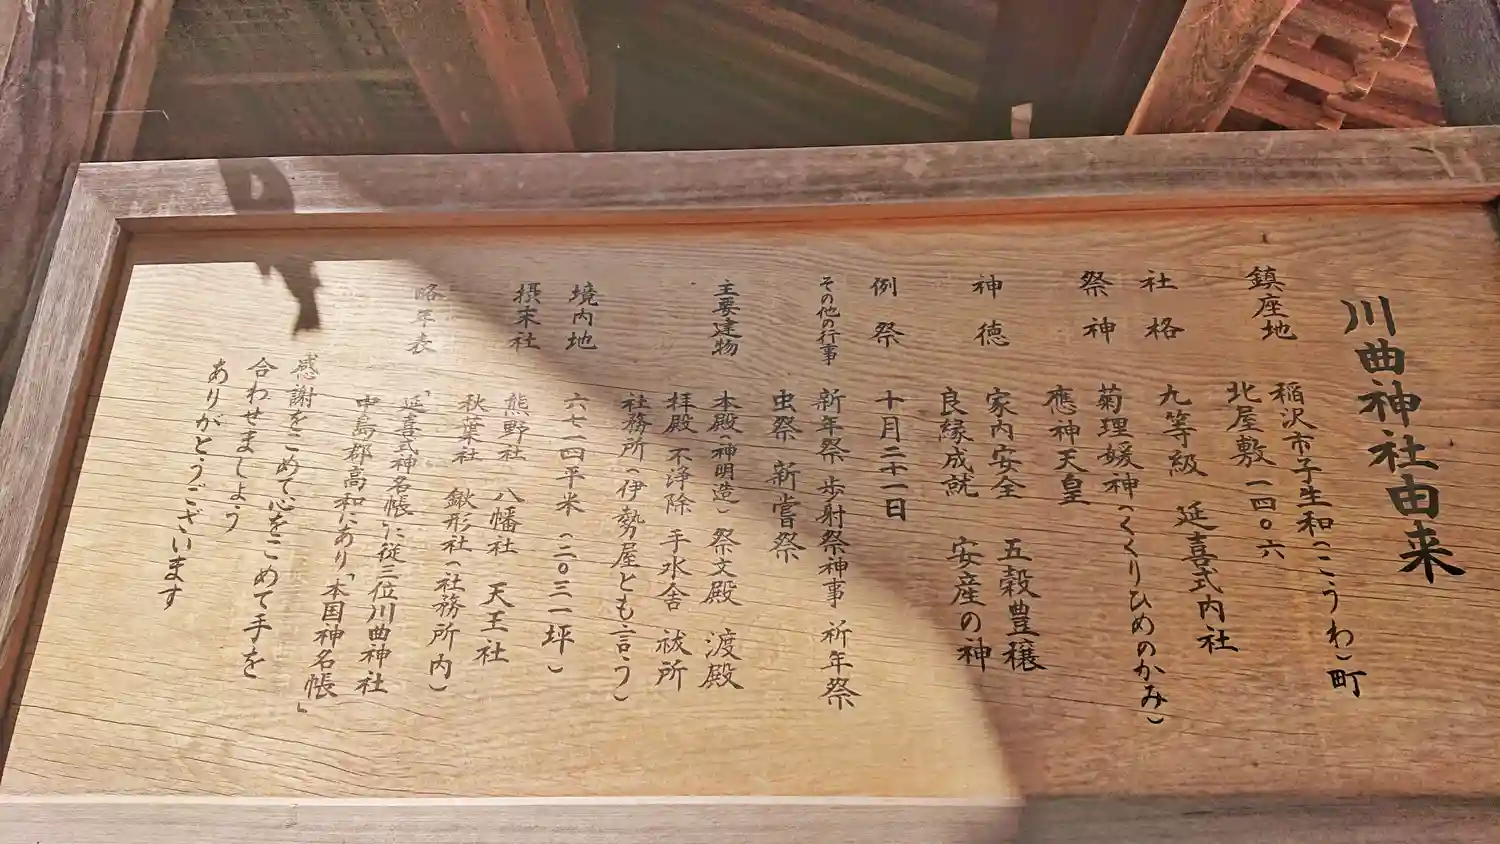 川曲神社由来
鎮座地 稲沢市子生和(こうわ)町
北屋敷一四〇六
社格 九等級 延喜式内社
祭神 菊理媛神(くくりひめのかみ)
應神天皇
神徳 家内安全 五穀豊穣
良縁成就 安産の神
例祭 十月二十一日
その他の行事 新年祭 歩射祭神事 祈年祭
虫祭 新嘗祭
主要建物 本殿(神明造) 祭文殿 渡殿
拝殿 不浄除 手水舎 祓所
社務所(伊勢屋とも言う)
境内地 六七一四平米(二〇三一坪)
摂末社 熊野社 八幡社 天王社
秋葉社 鍬形社(社務所内)
略年表 「延喜式神名帳」に従三位川曲神社
中島郡高和にあり「本国神名帳」
感謝をこめて心をこめて手を
合わせましょう
ありがとうございます